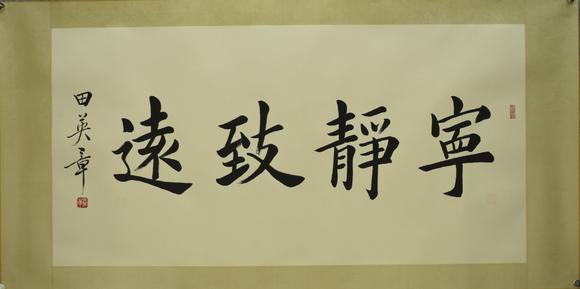 寧靜致遠
田英章